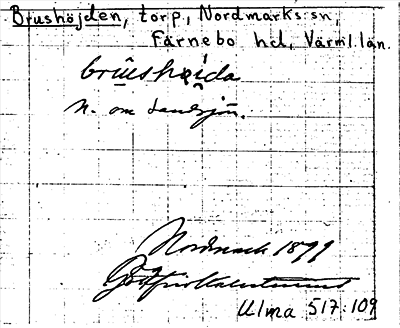 Brushöjden, torp, Nordmarks sn,
Färnebo hd, Värml. län.
brùshø̀ida
N. om Sandsjön.
Nordmark 1899
Götfrid Kallstenius
Ulma 517:109